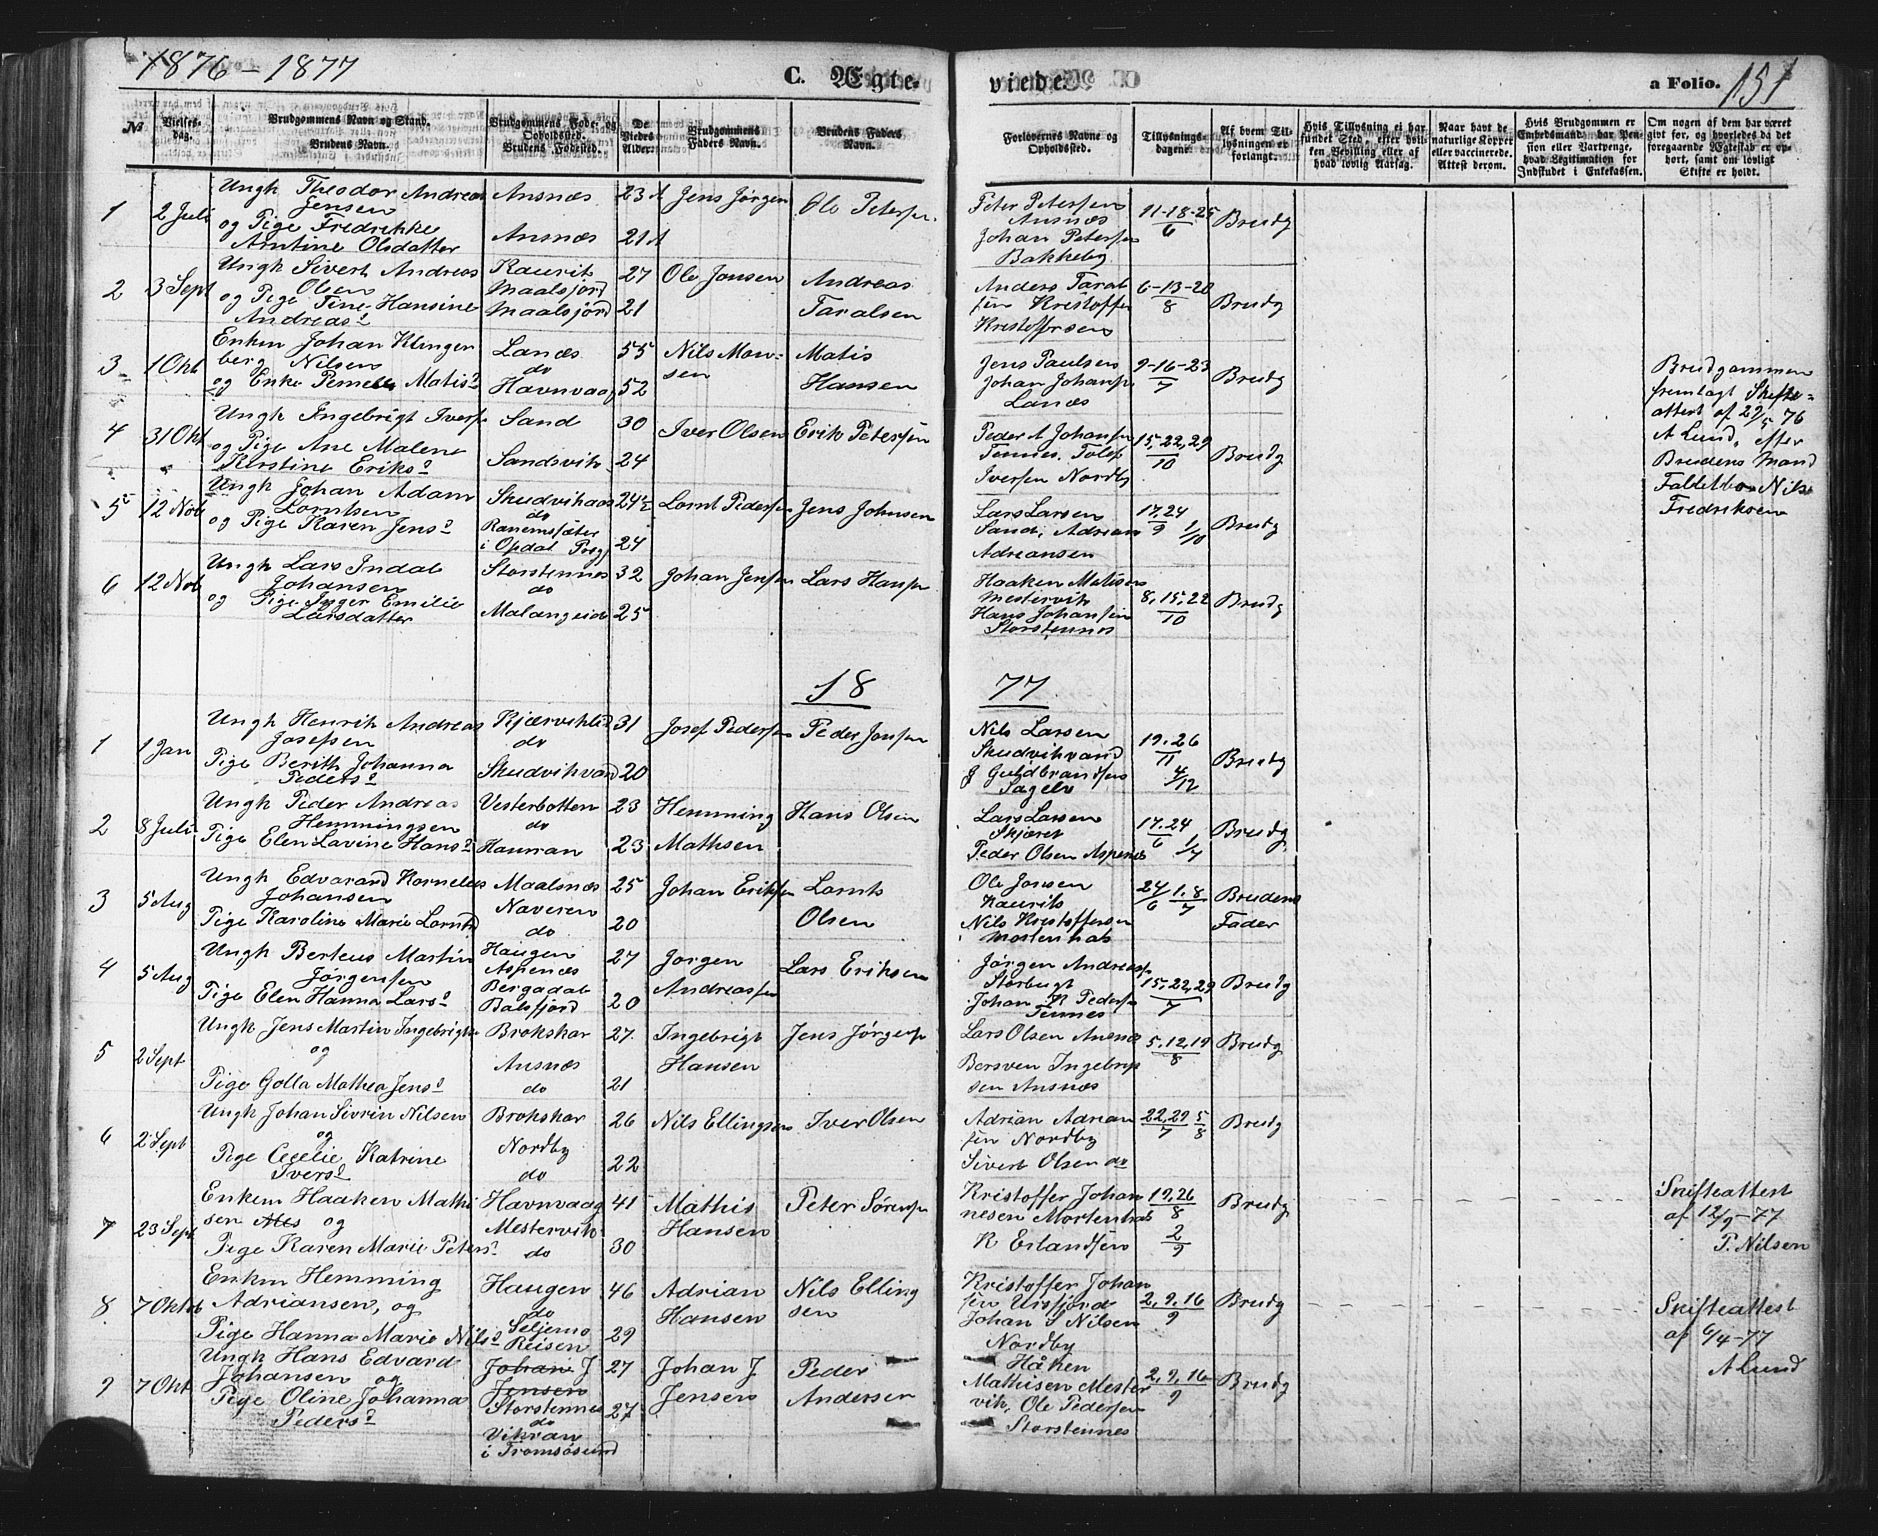 1876 – 1877
C. Ægte-
viede
a Folio. 151
№
Vielses-
dag.
Brudgommens Navn og Stand.
Brudens Navn.
Brudgommens Føde- og
Opholdssted.
Brudens Fødested.
De
Viedes
Alder.
Brudgommens
Faders Navn.
Brudens Faders
Navn.
Forlovernes Navne og
Opholdssted.
Tillysnings-
dagene.
Af hvem Til-
lysningen er
forlangt.
Hvis Tillysning ei har
fundet Sted, efter hvil-
ken Bevilling eller af
hvad lovlig Aarsag.
Naar havt de
naturlige Kopper
eller vaccinerede.
Attest derom.
Hvis Brudgommen er
Enkedsmand, har Pen-
sion eller Vartpenge,
hvad Legitimation for
Indskudet i Enkekassen.
Om nogen af dem har været
givt for, og hvorledes da det
foregaaende Ægteskab er op-
hørt, samt om lovligt
Skifte er holdt.
1
2 Juli
Ungk Theodor Andreas
Jensen
og Pige Fredrikke
Arntine Olsdatter
Ansnæs
Ansnæs
23 A
21 A
Jens Jørgen
Ole Petersen
Peter Petersen
Ansnæs
Johan Petersen
Bakkeby
11-18-25/6
Brudg
2
3 Sept
Ungk Sivert Andreas
Olsen
og Pige Tine Hansine
Andreasd
Kaurit
Maalsjord
Maalsjord
27
21
Ole Jonsen
Andreas
Taralsen
Anders Taral
sen Kristoffer
Kristoffersen
6-13-20/8
Brudg
3
1 Okt
Enkm Johan Klinger
berg Nilsen
og Enke Pernele Matisd
Lanæs
do
Havnvaag
55
52
Nils Mon-
sen
Matis
Hansen
Jens Paulsen
Johan Johans.
Lanæs
9-16-23/7
Brudg
Brudgommen
fremlagt Skifte-
attest af 22/5 76
A Lund, efter
Brudens Mand
Nils
Fredriksen
4
31 Okt
Ungk Ingebrigt Ivers.
og Pige Ane Malene
Kerstine Eriksd
Sand
Sandsvik
30
24
Iver Olsen
Erik Petersen
Peder A Johansen
Tennes. Tolef
Iversen Nordby
15,22,29/10
Brudg
5
12 Nov
Ungk Johan Adam
Lorntsen
og Pige Karen Jensd
Skudvikaas
do
Ranemsæter
i Opdal Prsg
24½
24
Lornt Pedersen
Jens Johnsen
Lars Larsen
Sand, Adrian
Adreansen
17.24/9 1/10
Brudg
6
12 Nov
Ungk Lars Indal
Johansen
og Pige Inger Emilie
Larsdatter
Storstennes
do
Malangeid
32
25
Johan Jensen
Lars Hansen
Haaken Matisen
Mestervik
Hans Johansen
Storstennes
8,15,22/10
Brudg
18 77
1
1 Jan
Ungk Henrik Andreas
Josefsen
Pige Berith Johanna
Pedersd
Kjærviklid
do
Skudvikvand
31
20
Josef Pedersen
Peder Jonsen
Nils Larsen
Skudvikvand
J Guldbrandsen
Sagelv
19.26/11
4/12
Brudg
2
8 Juli
Ungk Peder Andreas
Hemmingsen
Pige Elen Lavine Hansd
Vesterbotten
do
Hauvan
23
23
Hemming
Mathsen
Hans Olsen
Lars Larsen
Skjæret
Peder Olsen Aspenes
17.24/6 1/7
Brudg
3
5 Aug
Ungk Edvarand Kornelius
Johansen
Pige Karoline Marie Lorntsd
Maalsnæs
Naveren
do
25
20
Johan Eriksen
Lornts
Olsen
Ole Jonsen
Kaurits
Nils Kristoffersen
Mortenhals
24/6 1.8/7
Brudens
Fader
4
5 Aug
Ungk Berteus Martin
Jørgensen
Pige Elen Hanna Larsd
Haugen
Aspenæs
Bergadal
Balsfjord
27
20
Jørgen
Andreassen
Lars Eriksen
Jørgen Andreas.
Storbugt
Johan K Peders.
Tennes
15,22,29/7
Brudg
5
2 Sept
Ungk Jens Martin Ingebrigts.
og
Pige Golla Mathea Jensd
Brokskar
Ansnæs
do
27.
21
Ingebrigt
Hansen
Jens Jørgens.
Lars Olsen Ansnæs
Bersven Ingebrigt
sen Ansnæs
5,12,19/8
Brudg
6
2 Sept
Ungk Johan Sivrin Nilsen
og
Pige Cecelie Katrine
Iversd
Brokskar
Nordby
do
26
22
Nils Ellingsen
Iver Olsen
Adrian Adrian
sen Nordby
Sivert Olsen do
22,29/7 5/8
Brudg
7
23 Sept
Enkem Haaken Mathi
sen og
Pige Karen Marie Petersd
Havnvaag
Mestervik
do
41
30
Mathis
Hansen
Peter Sørens.
Kristoffer Johan
nesen Mortenhals
K Erlandsen
19.26/8
2/9
Brudg
Skifteattest
af 12/9-77
P. Nilsen
8
7 Oktob
Enkm Hemming
Adriansen, og
Pige Hanna Marie Nilsd
Haugen
do
Seljemo
Reisen
46
29
Adrian
Hansen
Nils Elling
sen
Kristoffer Johan
sen Ursfjord
Johan S Nilsen
Nordby
2,9,16/9
Brudg
Skifteattest
af 6/4-77
A Lund
9
7 Okt
Ungk Hans Edvard
Johansen og
Pige Oline Johanna
Pedersd
Johan J
Jensen
Storstennes
do
Vikran
i Tromsøsund
27
27
Johan J
Jensen
Peder
Andersen
Håken
Mathisen Mester
vik, Ole Pedersen
Storstennes
2,9,16/9
Brudg